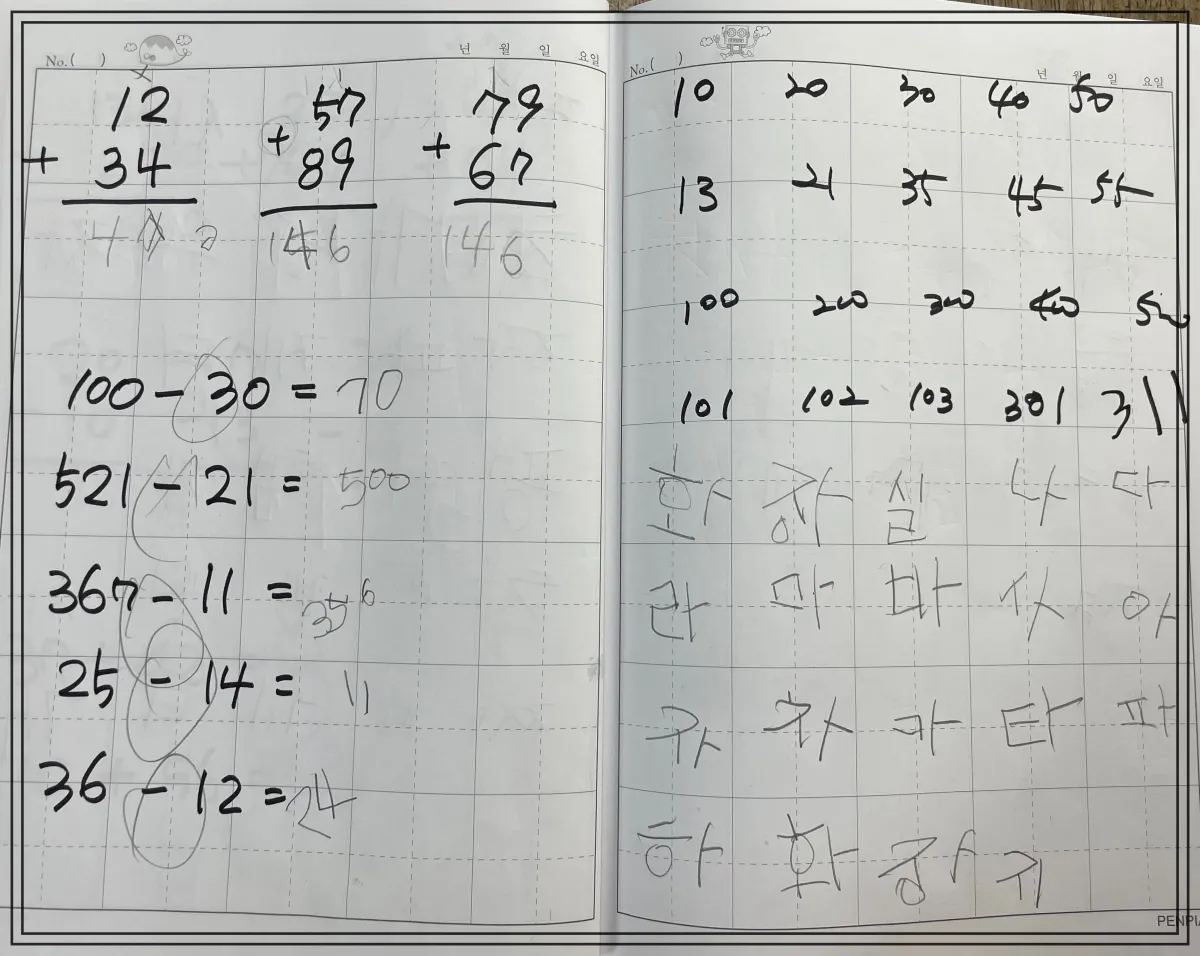 No.( ) 년 월 일 요일
12 57 79
+ 34 + 89 + 67
4 146 146
100 - 30 = 70
521 - 21 = 500
367 - 11 = 356
25 - 14 = 11
36 - 12 = 24
No.( ) 년 월 일 요일
10 20 30 40 50
13 21 35 45 55
100 200 300 400 500
101 102 103 301 311
화 장 실 나 다
라 마 바 사 아
자 차 카 타 파
하 화 장 지
PENPIA